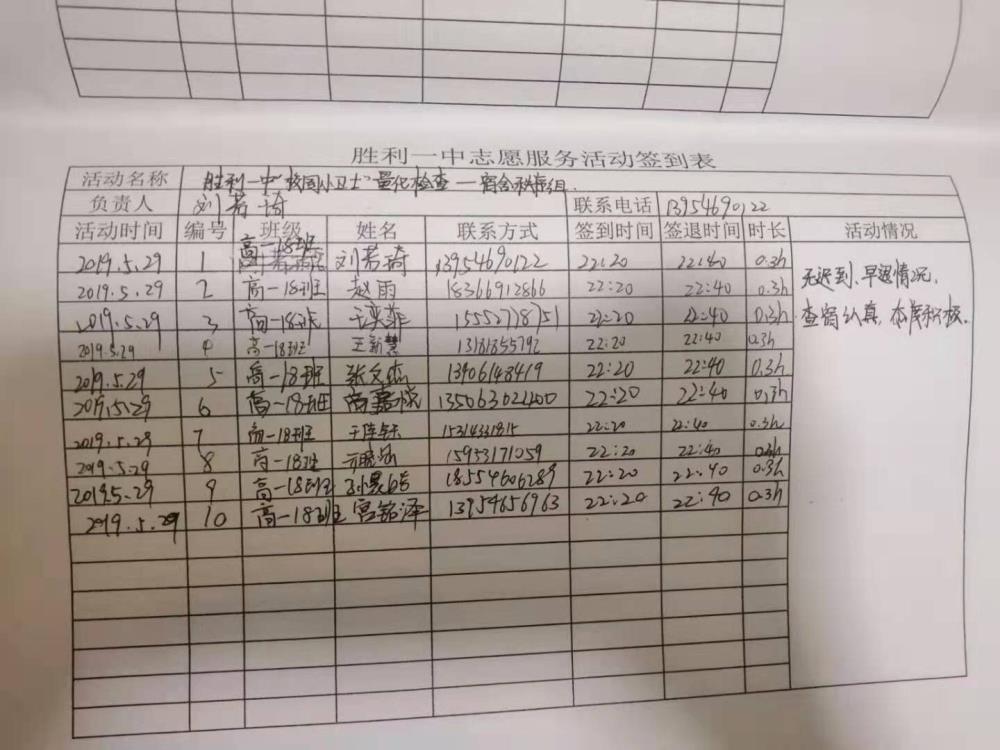 胜利一中志愿服务活动签到表
活动名称 胜利一中“校园小卫士”量化检查—宿舍秩序组.
负责人 刘若琦 联系电话 13954690122
活动时间 编号 班级 姓名 联系方式 签到时间 签退时间 时长 活动情况
2019.5.29 1 高一18班 刘若琦 13954690122 22:20 22:40 0.3h
2019.5.29 2 高一18班 赵雨 18366912866 22:20 22:40 0.3h
2019.5.29 3 高一18班 15552778751 22:20 22:40 0.3h
2019.5.29 4 高一18班 王新慧 13181855792 22:20 22:40 0.3h
2019.5.29 5 高一18班 张文杰 13906148419 22:20 22:40 0.3h
2019.5.29 6 高一18班 13506302400 22:20 22:40 0.3h
2019.5.29 7 高一18班 22:20 22:40 0.3h
2019.5.29 8 高一18班 15953171059 22:20 22:40 0.3h
2019.5.29 9 高一18班 18554606289 22:20 22:40 0.3h
2019.5.29 10 高一18班 宫铭泽 13954656963 22:20 22:40 0.3h
无迟到、早退情况,
查宿认真,态度积极.